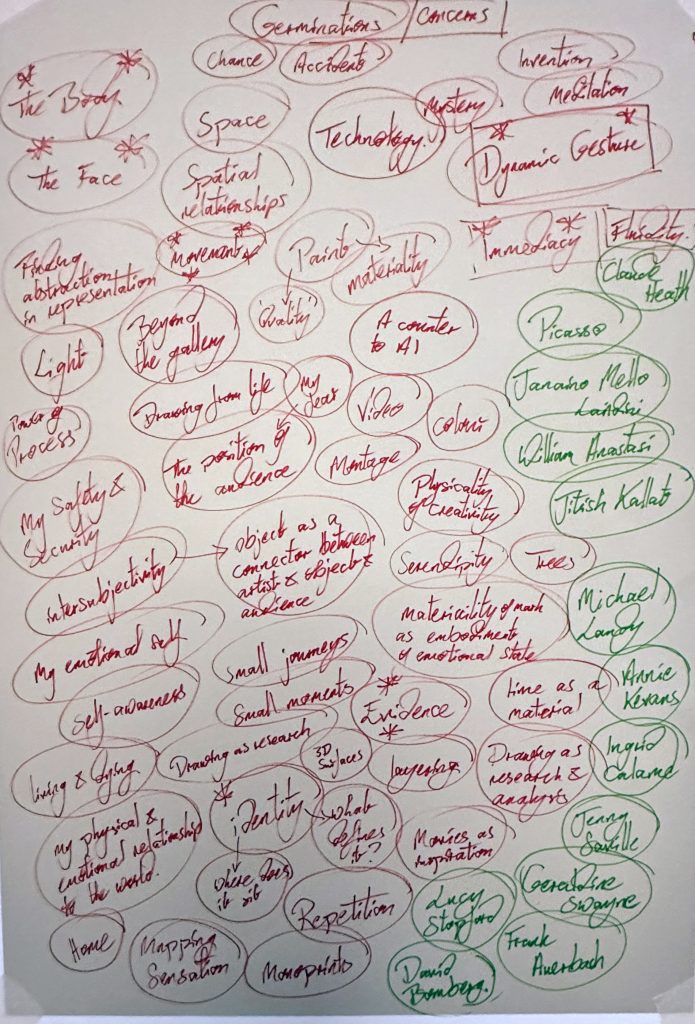 Germinations / Concerns
Chance
Accident
Invention
Meditation
The Body.
Space
Technology.
Mystery
Dynamic Gesture
The Face
Spatial
relationships
Finding
abstraction
in representation
Movement
Paint
materiality
Immediacy
Fluidity.
Claude
Heath
'Quality'
Light
Beyond
the gallery
A counter
to AI
Picasso
Drawing from life
My
fear
Video
Colour
Janaino Mello
Landini
Power of
Process
The position of
the audience
Montage
William Anastasi
My Safety &
Security
Physicality
of creativity
Jitish Kallat
intersubjectivity
Object as a
connector between
artist & object &
audience
Serendipity
Trees
Materiality of mark
as embodiment
of emotional state
Michael
Landy
My emotional self
Small journeys
Self-awareness
Small moments
Evidence
time as a
material
Annie
Kevans
Living & dying
Drawing as research
3D
Surfaces
Layering
Drawing as
research &
analysis
Ingrid
Calame
My physical &
emotional relationship
to the world.
identity
What
defines
it?
Movies as
inspiration
Jenny
Saville
Where does
it sit
Repetition
Lucy
Stopford
Geraldine
Swayne
Home
Mapping
Sensation
Monoprints
David
Bomberg.
Frank
Auerbach